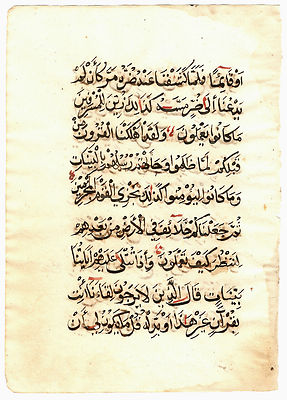 او قائما فلما كشفنا عنه ضره مر كان لم
يدعنا الى ضر مسه كذلك زين للمسرفين
ما كانوا يعملون ولقد اهلكنا القرون من
قبلكم لما ظلموا وجاءتهم رسلهم بالبينات
وما كانوا ليؤمنوا كذلك نجزي القوم المجرمين
ثم جعلناكم خلائف في الارض من بعدهم
لننظر كيف تعملون واذا تتلى عليهم اياتنا
بينات قال الذين لا يرجون لقاءنا ائت
بقرآن غير هذا او بدله قل ما يكون لي ان